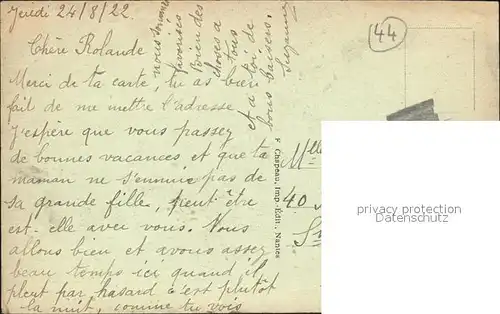 Jeudi 24/8/22
Chère Rolande
Merci de ta carte, tu as bien
fait de me mettre l'adresse
J'espère que vous passez
de bonnes vacances et que ta
maman ne s'ennuie pas de
sa grande fille, peut être
est-elle avec vous. Nous
allons bien et avons assez
beau temps ici quand il
pleut par hasard c'est plutôt
la nuit, comme tu vois
nous sommes
favorisés
Bien des
choses a
tous
et a toi de
bons baisers.
Suzanne
F. Chapeau, Imp.-Édit., Nantes
144
Mlle
40
privacy protection
Datenschutz